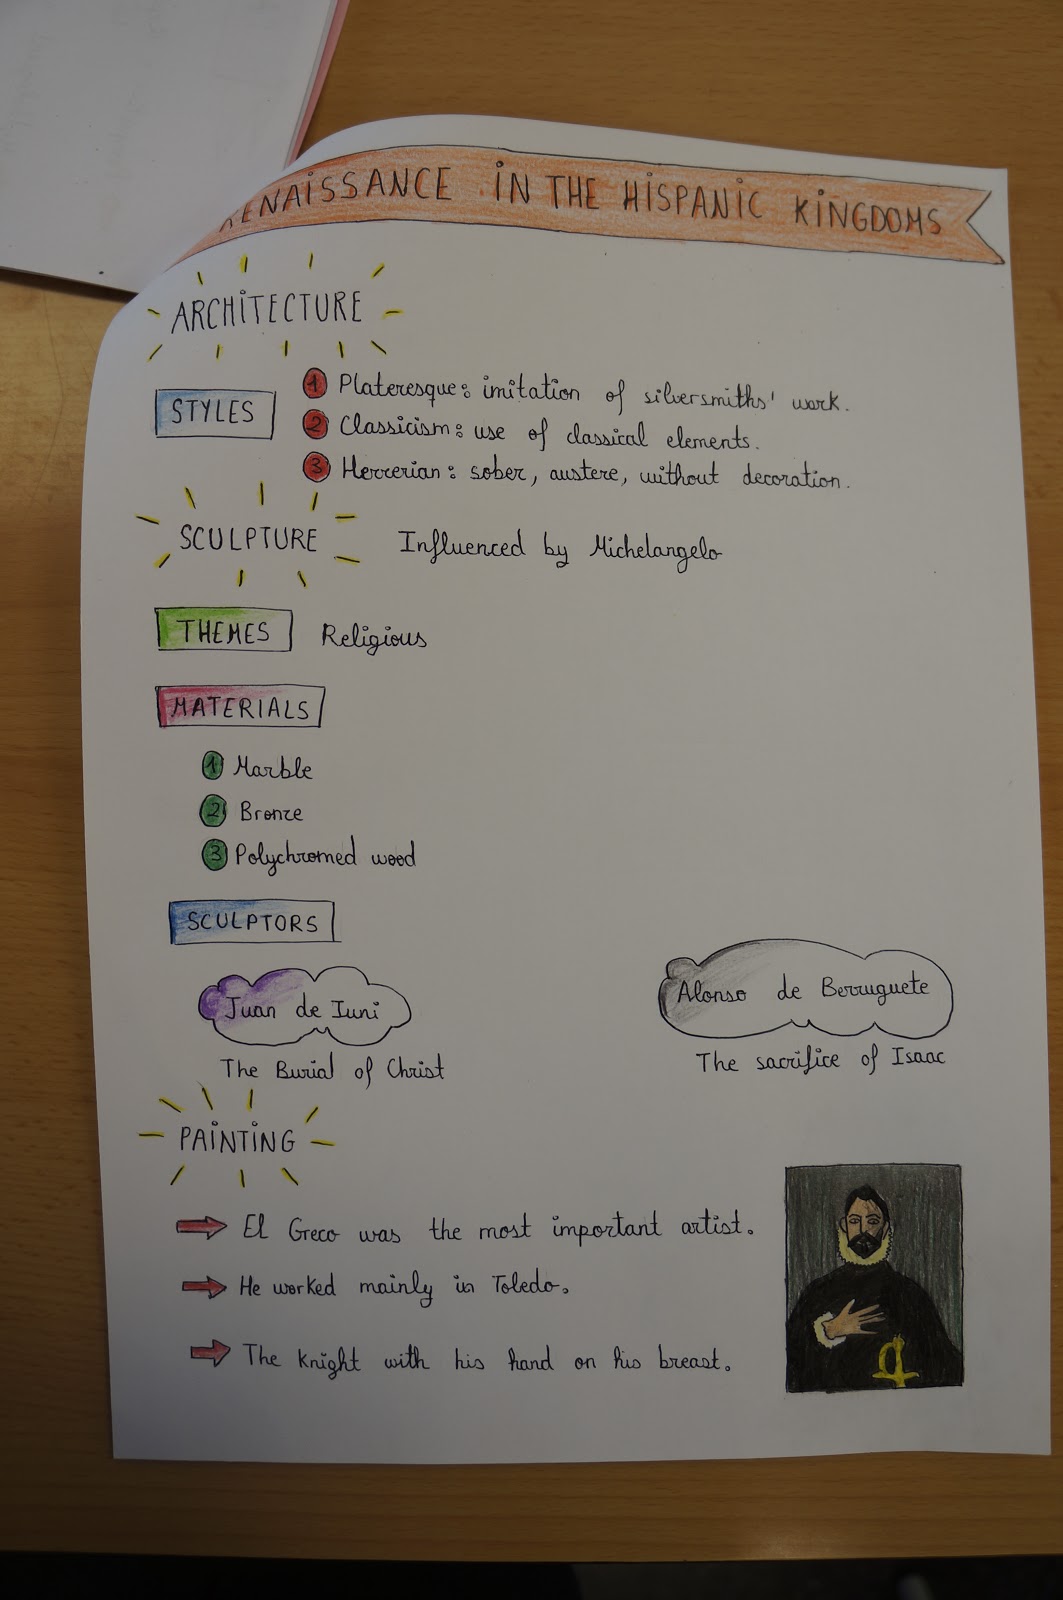 RENAISSANCE IN THE HISPANIC KINGDOMS
ARCHITECTURE
STYLES
1 Plateresque: imitation of silversmiths' work.
2 Classicism: use of classical elements.
3 Herrerian: sober, austere, without decoration.
SCULPTURE Influenced by Michelangelo
THEMES Religious
MATERIALS
1 Marble
2 Bronze
3 Polychromed wood
SCULPTORS
Juan de Iuni
The Burial of Christ
Alonso de Berruguete
The sacrifice of Isaac
PAINTING
El Greco was the most important artist.
He worked mainly in Toledo.
The Knight with his hand on his breast.